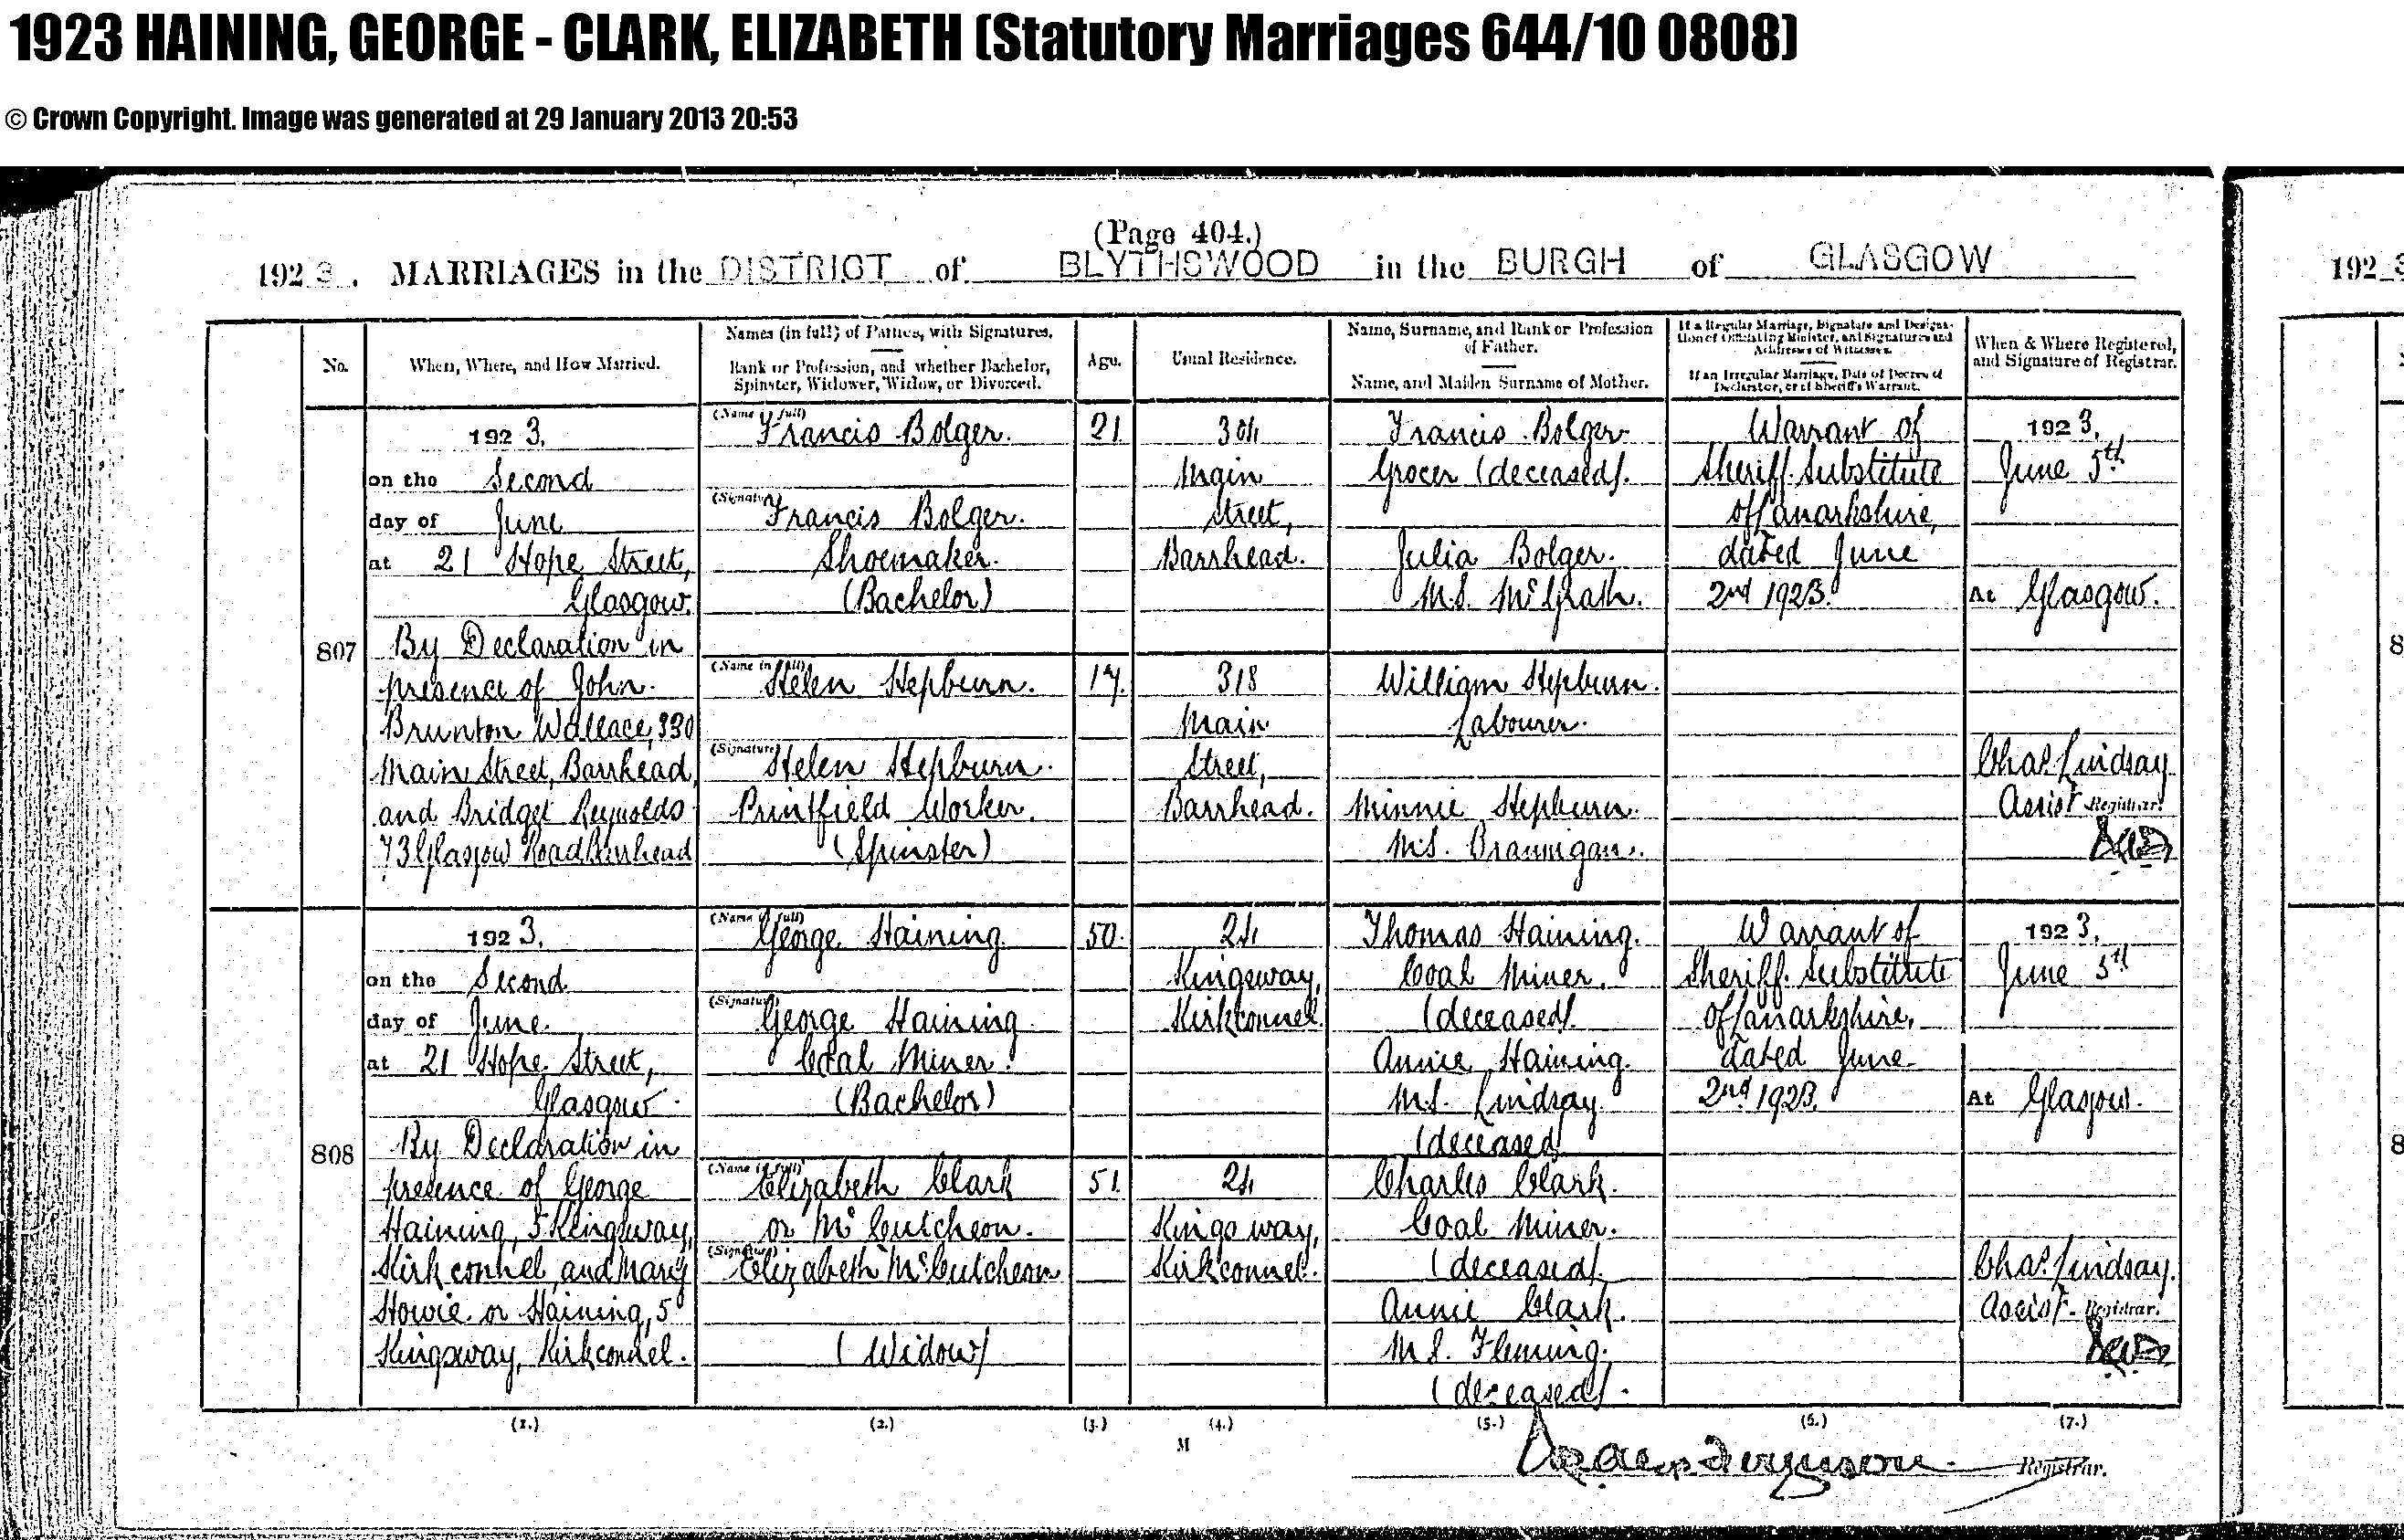 1923 HAINING, GEORGE - CLARK, ELIZABETH (Statutory Marriages 644/10 0808)
© Crown Copyright. Image was generated at 29 January 2013 20:53
(Page 404.)
1923. MARRIAGES in the DISTRICT of BLYTHSWOOD in the BURGH of GLASGOW
192 3
No.
When, Where, and How Married.
Names (in full) of Parties, with Signatures.
Rank or Profession, and whether Bachelor,
Spinster, Widower, Widow, or Divorced.
Age.
Usual Residence.
Name, Surname, and Rank or Profession
of Father.
Name, and Maiden Surname of Mother.
If a Regular Marriage, Signature and Designa-
tion of Officiating Minister, and Signatures and
Addresses of Witnesses.
If an Irregular Marriage, Date of Decree of
Declarator, or of Sheriff's Warrant.
When & Where Registered,
and Signature of Registrar.
807
1923.
on the Second
day of June
at 21 Hope Street,
Glasgow.
By Declaration in
presence of John
Brunton Wallace, 330
Main Street, Barrhead,
and Bridget Reynolds
73 Glasgow Road Barrhead
(Name in full)
Francis Bolger.
(Signature)
Francis Bolger.
Shoemaker.
(Bachelor)
(Name in full)
Helen Hepburn.
(Signature)
Helen Hepburn.
Printfield Worker.
(Spinster)
21
17.
304
Main
Street,
Barrhead.
318
Main
Street,
Barrhead.
Francis Bolger
Grocer (deceased).
Julia Bolger.
M.S. McGrath.
William Hepburn.
Labourer.
Minnie Hepburn.
M.S. Brannigan.
Warrant of
Sheriff Substitute
of Lanarkshire,
dated June
2nd 1923.
1923.
June 5th
At Glasgow.
Chas. Lindsay
Assist Registrar.
808
1923.
on the Second
day of June
at 21 Hope Street,
Glasgow.
By Declaration in
presence of George
Haining, 5 Kingsway,
Kirkconnel, and Mary
Howie or Haining, 5
Kingsway, Kirkconnel.
(Name in full)
George Haining
(Signature)
George Haining
Coal Miner.
(Bachelor)
(Name in full)
Elizabeth Clark
or McCutcheon.
(Signature)
Elizabeth McCutcheon
(Widow)
50.
51.
24
Kingsway,
Kirkconnel.
24
Kingsway,
Kirkconnel.
Thomas Haining.
Coal Miner.
(deceased).
Annie Haining.
M.S. Lindsay
(deceased)
Charles Clark.
Coal Miner.
(deceased).
Annie Clark.
M.S. Fleming.
(deceased).
Warrant of
Sheriff Substitute
of Lanarkshire,
dated June
2nd 1923.
1923.
June 5th
At Glasgow.
Chas. Lindsay.
Assist. Registrar.
(1.) (2.) (3.) (4.) (5.) (6.) (7.)
M
Ferguson. Registrar.
8
8